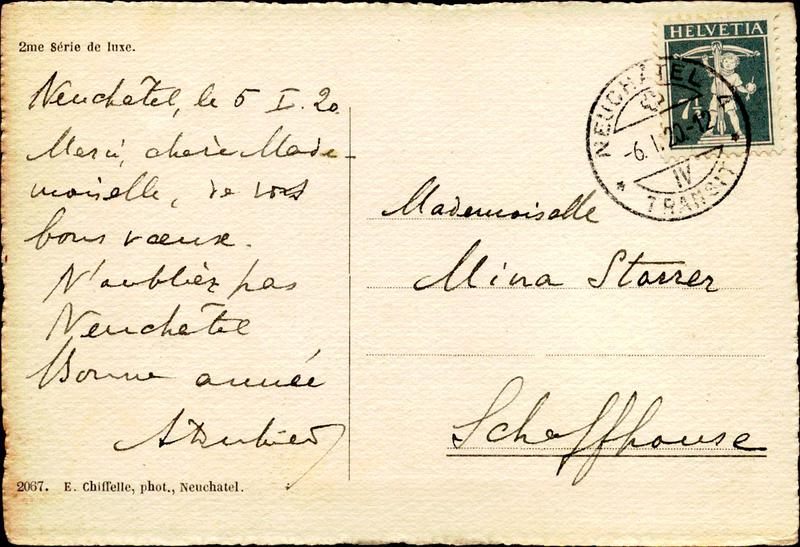 2me Série de luxe.
Neuchâtel, le 5 I. 20.
Merci, chère Made-
moiselle, de vos
bons vœux.
N'oubliez pas
Neuchâtel
Bonne année
2067. E. Chiffelle, phot., Neuchatel.
HELVETIA
NEUCHATEL
-6.I.20.-12
IV
TRANSIT
Mademoiselle
Mina Storrer
Schaffhouse